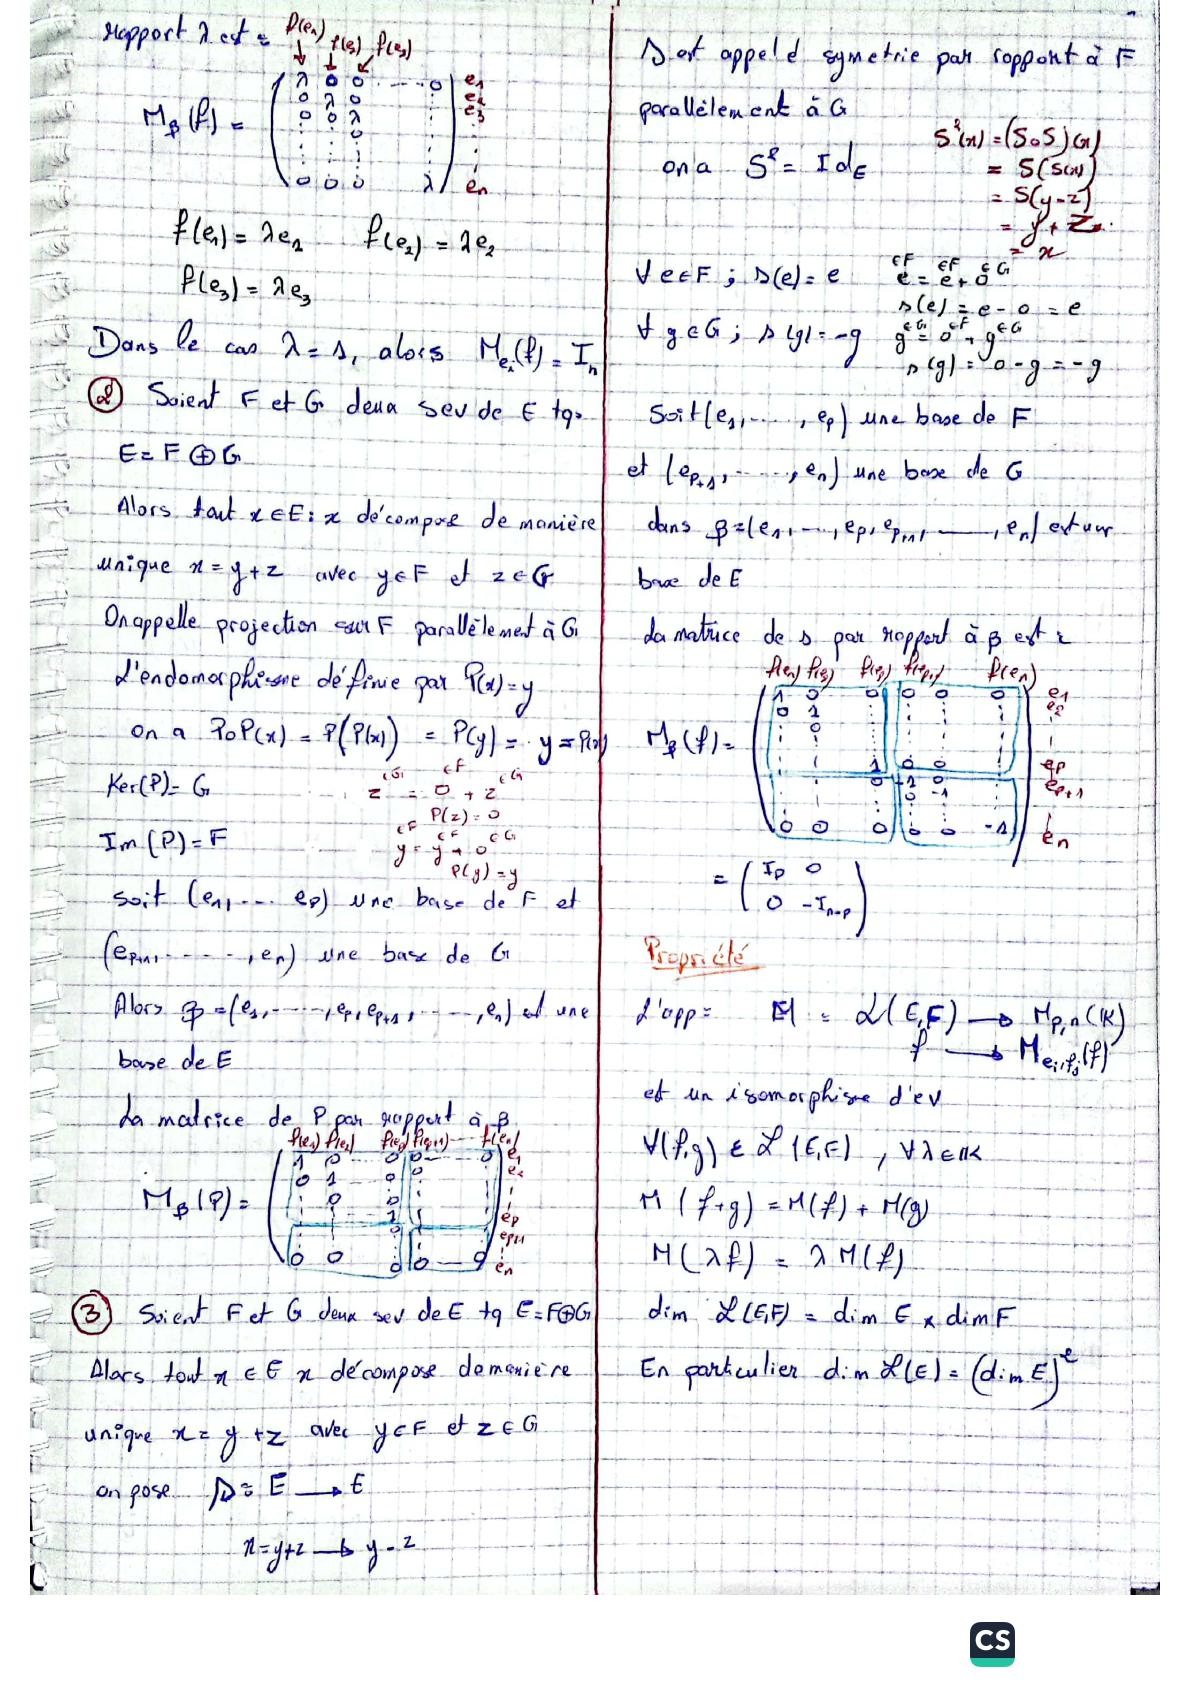 rapport λ est :
f(e1) f(e2) f(e3)
Mβ(f) = ( λ 0 0 ---- 0 ) e1
( 0 λ 0 ) e2
( 0 0 λ ) e3
( 0 )
( 0 0 0 λ ) en
f(e1) = λe1 f(e2) = λe2
f(e3) = λe3
Dans le cas λ = 1, alors Mei(f) = In
② Soient F et G deux sev de E tq:
E = F ⊕ G
Alors tout x ∈ E: x décompose de manière
unique x = y + z avec y ∈ F et z ∈ G
On appelle projection sur F parallèlement à G
L'endomorphisme définie par P(x) = y
on a PoP(x) = P(P(x)) = P(y) = y = P(x)
Ker(P) = G
∈G ∈F ∈G
z = 0 + z
P(z) = 0
Im(P) = F
∈F ∈F ∈G
y = y + 0
P(y) = y
soit (e1, .... eP) une base de F et
(eP+1, - - - - , en) une base de G
Alors β = (e1, -----, eP, eP+1, - ---, en) est une
base de E
La matrice de P par rapport à β
f(e1) f(e2) f(ep) f(ep+1) --- f(en)
Mβ(P) = ( 1 0 -- 0 0 --- 0 ) e1
( 0 1 0 0 ) e2
( 0 0 )
( 1 ) ep
( 0 ) ep+1
( 0 0 0 0 — 0 ) en
③ Soient F et G deux sev de E tq E = F⊕G
Alors tout x ∈ E x décompose de manière
unique x = y + z avec y ∈ F et z ∈ G
on pose s : E → E
x = y+z → y - z
s est appelé symetrie par rapport à F
parallèlement à G
on a S² = IdE
S²(x) = (SoS)(x)
= S(S(x))
= S(y-z)
= y + z
= x
∀ e ∈ F ; s(e) = e
∈F ∈F ∈G
e = e + 0
s(e) = e - 0 = e
∀ g ∈ G ; s(g) = -g
∈G ∈F ∈G
g = 0 + g
s(g) = 0 - g = -g
Soit (e1, ...., ep) une base de F
et (ep+1, - ----, en) une base de G
dans β = (e1, --..., ep, ep+1, ——, en) est une
base de E
La matrice de s par rapport à β est :
f(e1) f(e2) f(ep) f(ep+1) f(en)
Mβ(f) = ( 1 0 0 0 0 0 ) e1
( 0 1 ) e2
( 0 )
( 1 0 0 ) ep
( 0 -1 0 ) ep+1
( 0 -1 )
( 0 0 0 0 0 -1 ) en
= ( Ip 0 )
( 0 -In-p )
Propriété
L'app : M : ℒ(E,F) → Mp,n(IK)
f → Mei,fj(f)
et un isomorphisme d'ev
∀(f,g) ∈ ℒ(E,F) , ∀λ ∈ IK
M(f+g) = M(f) + M(g)
M(λf) = λ M(f)
dim ℒ(E,F) = dim E x dim F
En particulier dim ℒ(E) = (dim E)²
CS